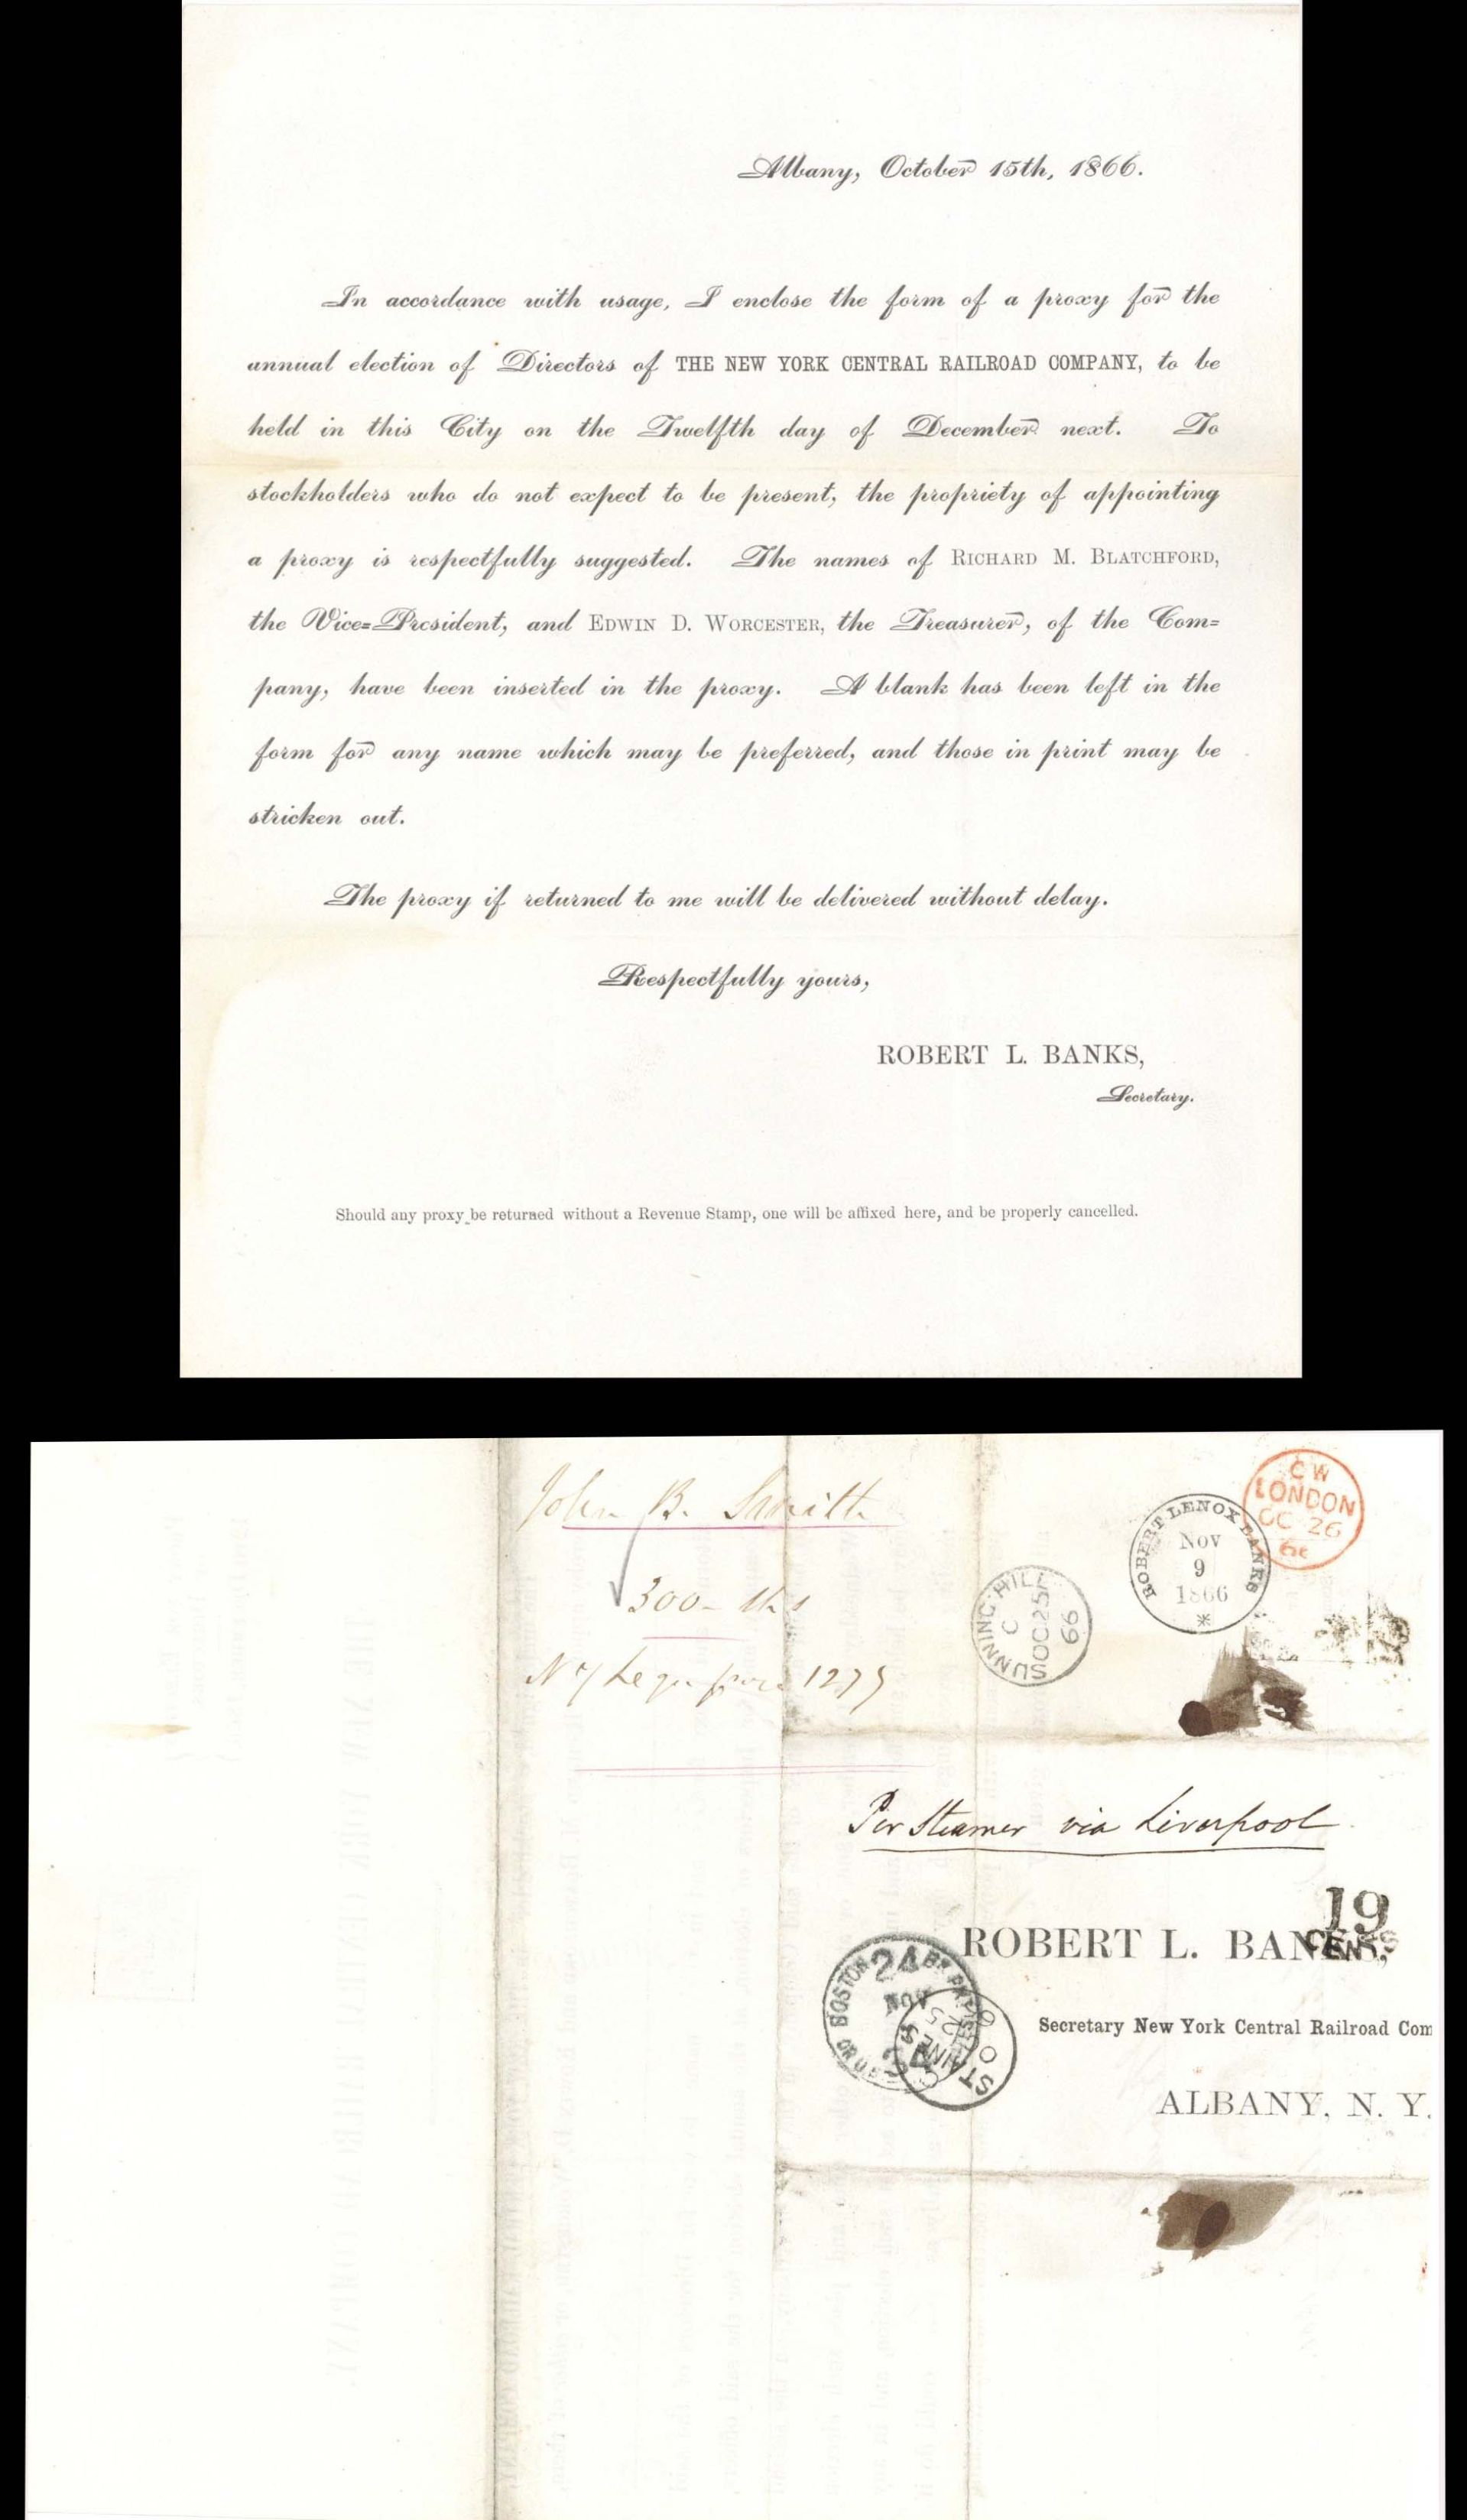 Albany, October 15th, 1866.
In accordance with usage, I enclose the form of a proxy for the
annual election of Directors of THE NEW YORK CENTRAL RAILROAD COMPANY, to be
held in this City on the Twelfth day of December next. To
stockholders who do not expect to be present, the propriety of appointing
a proxy is respectfully suggested. The names of RICHARD M. BLATCHFORD,
the Vice=President, and EDWIN D. WORCESTER, the Treasurer, of the Com=
pany, have been inserted in the proxy. A blank has been left in the
form for any name which may be preferred, and those in print may be
stricken out.
The proxy if returned to me will be delivered without delay.
Respectfully yours,
ROBERT L. BANKS,
Secretary.
Should any proxy be returned without a Revenue Stamp, one will be affixed here, and be properly cancelled.
John B. Smith
300
1279
CW
LONDON
OC 26
66
ROBERT LENOX BANKS
Nov
9
1866
SUNNING HILL
C
OC 25
66
Per Steamer via Liverpool
19
CENTS
ROBERT L. BANKS,
Secretary New York Central Railroad Com
ALBANY, N. Y.
BOSTON BR. PKT.
24
NOV
STAINES